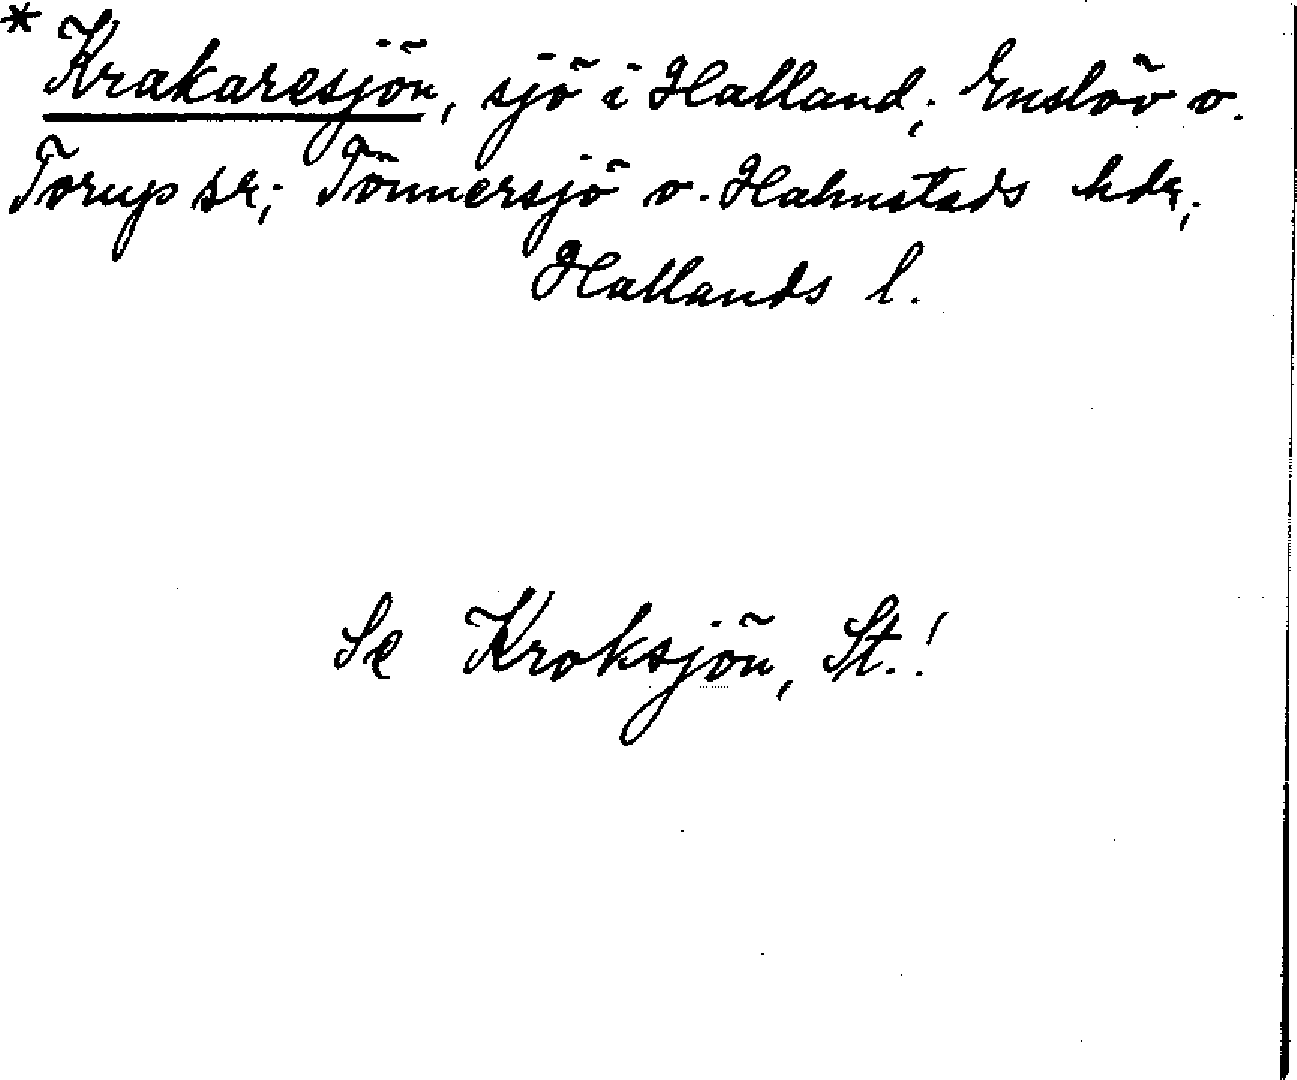 * Krakaresjön, sjö i Halland; Enslöv o.
Torup sr; Tönnersjö o. Halmstads hdr;
Hallands l.
Se Kroksjön, St.!